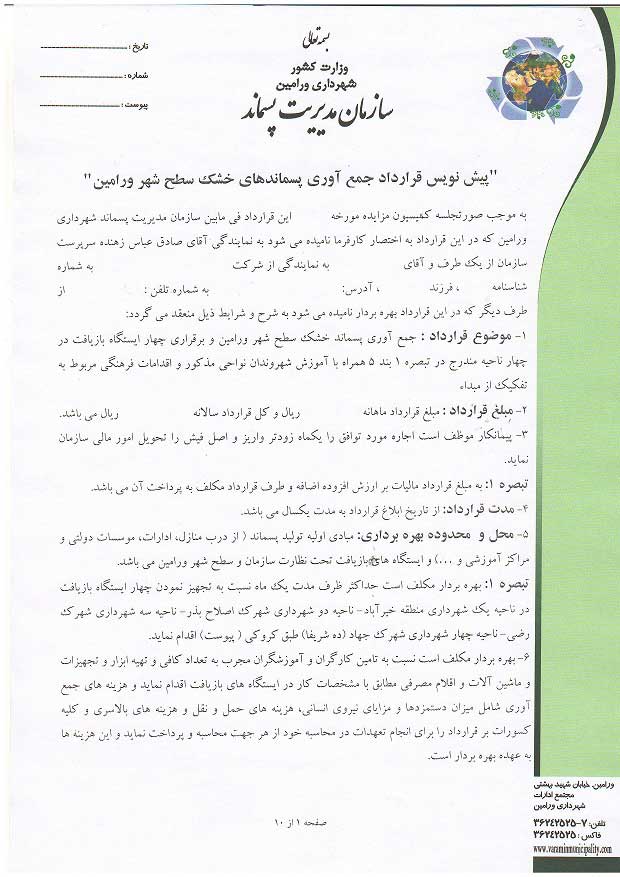 بسمه تعالی
وزارت کشور
شهرداری ورامین
سازمان مدیریت پسماند
تاریخ :
شماره :
پیوست :
"پیش نویس قرارداد جمع آوری پسماندهای خشک سطح شهر ورامین"
به موجب صورتجلسه کمیسیون مزایده مورخه این قرارداد فی مابین سازمان مدیریت پسماند شهرداری
ورامین که در این قرارداد به اختصار کارفرما نامیده می شود به نمایندگی آقای صادق عباس زهنده سرپرست
سازمان از یک طرف و آقای به نمایندگی از شرکت به شماره
شناسنامه ، فرزند ، آدرس: به شماره تلفن : از
طرف دیگر که در این قرارداد بهره بردار نامیده می شود به شرح و شرایط ذیل منعقد می گردد:
۱- موضوع قرارداد : جمع آوری پسماند خشک سطح شهر ورامین و برقراری چهار ایستگاه بازیافت در
چهار ناحیه مندرج در تبصره ۱ بند ۵ همراه با آموزش شهروندان نواحی مذکور و اقدامات فرهنگی مربوط به
تفکیک از مبداء
۲- مبلغ قرارداد : مبلغ قرارداد ماهانه ریال و کل قرارداد سالانه ریال می باشد.
۳- پیمانکار موظف است اجاره مورد توافق را یکماه زودتر واریز و اصل فیش را تحویل امور مالی سازمان
نماید.
تبصره ۱: به مبلغ قرارداد مالیات بر ارزش افزوده اضافه و طرف قرارداد مکلف به پرداخت آن می باشد.
۴- مدت قرارداد: از تاریخ ابلاغ قرارداد به مدت یکسال می باشد.
۵- محل و محدوده بهره برداری: مبادی اولیه تولید پسماند ( از درب منازل، ادارات، موسسات دولتی و
مراکز آموزشی و ...) و ایستگاه های بازیافت تحت نظارت سازمان و سطح شهر ورامین می باشد.
تبصره ۱: بهره بردار مکلف است حداکثر ظرف مدت یک ماه نسبت به تجهیز نمودن چهار ایستگاه بازیافت
در ناحیه یک شهرداری منطقه خیرآباد- ناحیه دو شهرداری شهرک اصلاح بذر- ناحیه سه شهرداری شهرک
رضی- ناحیه چهار شهرداری شهرک جهاد (ده شریفا) طبق کروکی ( پیوست) اقدام نماید.
۶- بهره بردار مکلف است نسبت به تامین کارگران و آموزشگران مجرب به تعداد کافی و تهیه ابزار و تجهیزات
و ماشین آلات و اقلام مصرفی مطابق با مشخصات کار در ایستگاه های بازیافت اقدام نماید و هزینه های جمع
آوری شامل میزان دستمزدها و مزایای نیروی انسانی، هزینه های حمل و نقل و هزینه های بالاسری و کلیه
کسورات بر قرارداد را برای انجام تعهدات در محاسبه خود از هر جهت محاسبه و پرداخت نماید و این هزینه ها
به عهده بهره بردار است.
صفحه ۱ از ۱۰
ورامین، خیابان شهید بهشتی
مجتمع ادارات
شهرداری ورامین
تلفن: ۷-۳۶۲۴۲۵۲۵
فاکس : ۳۶۲۴۲۵۲۵
www.varaminmunicipality.com